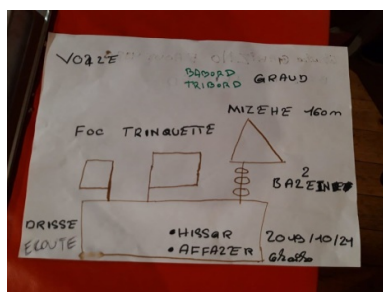 VOAZE
BABORD
TRIBORD
GRAUD
MIZEHE 160m
FOC TRINQUETTE
2
BAZEIN
DRISSE
ECOUTE
• HISSAR
• AFFAZER
2019/10/21